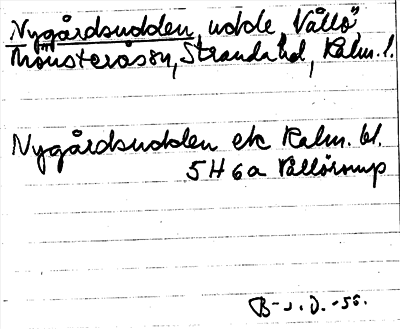 Nygårdsudden, udde, Vållö,
Mönsterås sn, Stranda hd, Kalm. l.
Nygårdsudden ek Kalm. bl.
5H 6a Vållörump
B-s. D. -56.